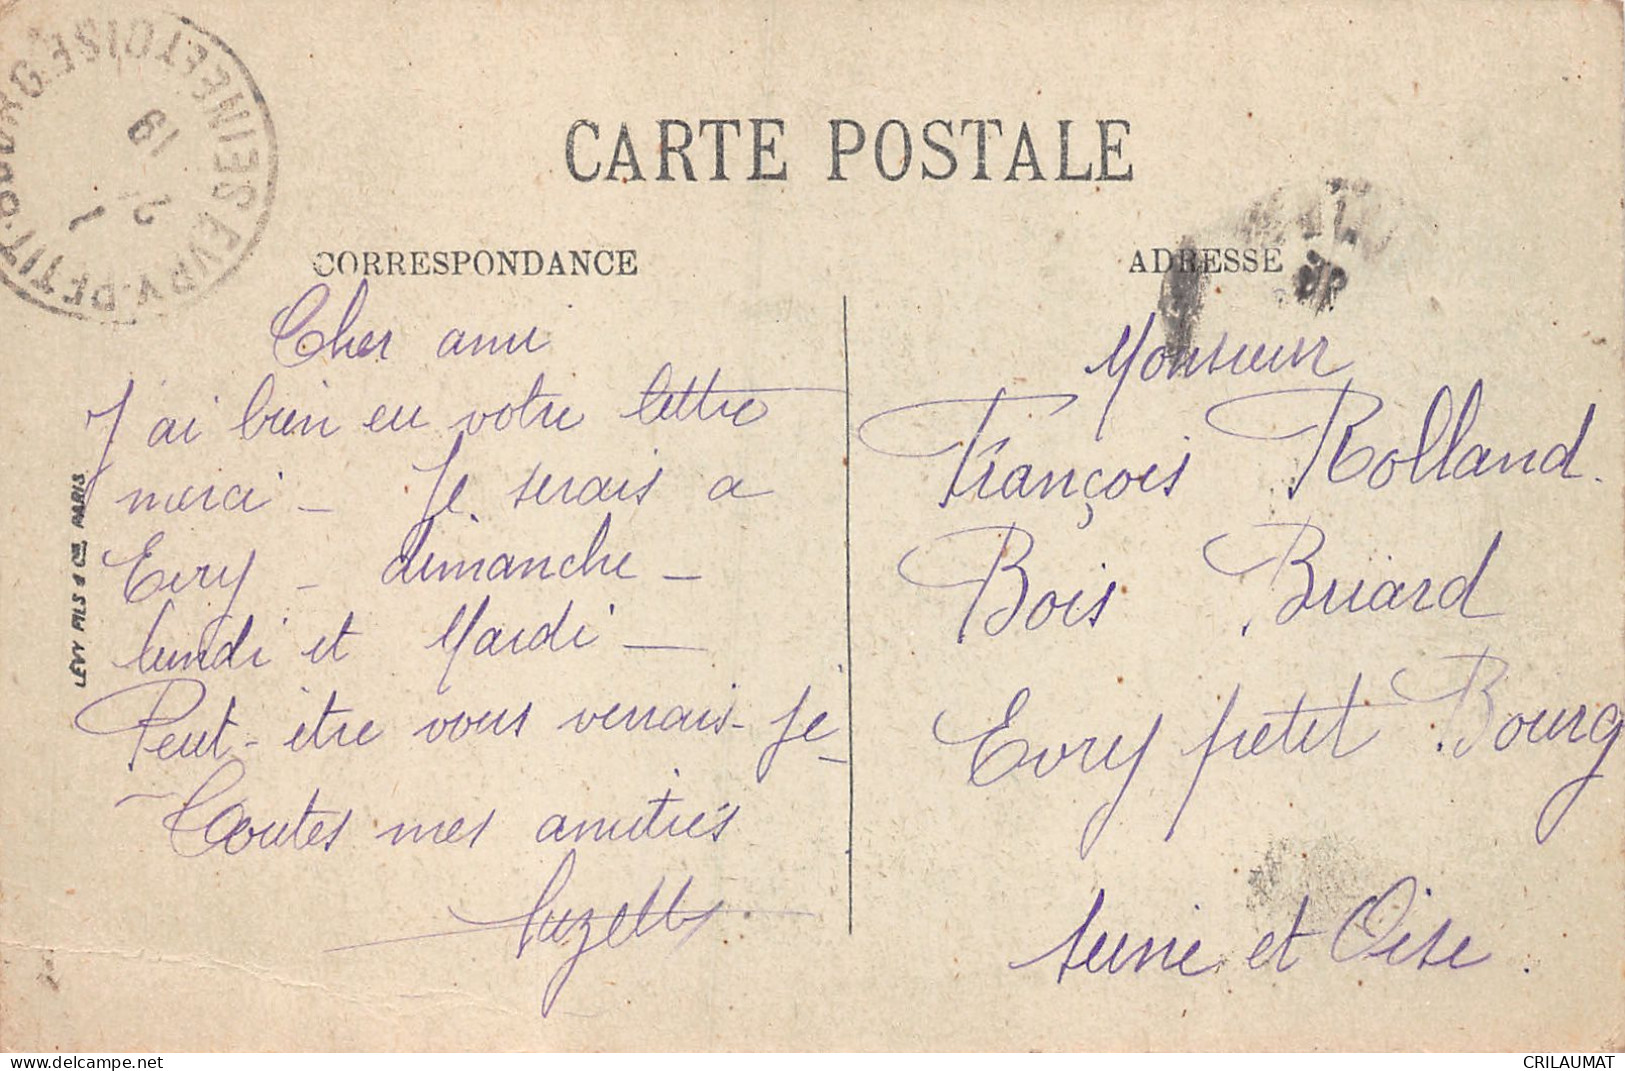 CARTE POSTALE
CORRESPONDANCE
ADRESSE
Cher ami
J'ai bien eu votre lettre
merci - Je serais a
Evry - dimanche -
lundi et Mardi -
Peut-être vous verrais-je -
Toutes mes amitiés
Suzette
Monsieur
François Rolland.
Bois Briard
Evry petit Bourg
Seine et Oise.
LEVY FILS & Cie, PARIS
EVRY-PETIT-BOURG SEINE ET OISE
19
2
1
delcampe.net
CRILAUMAT